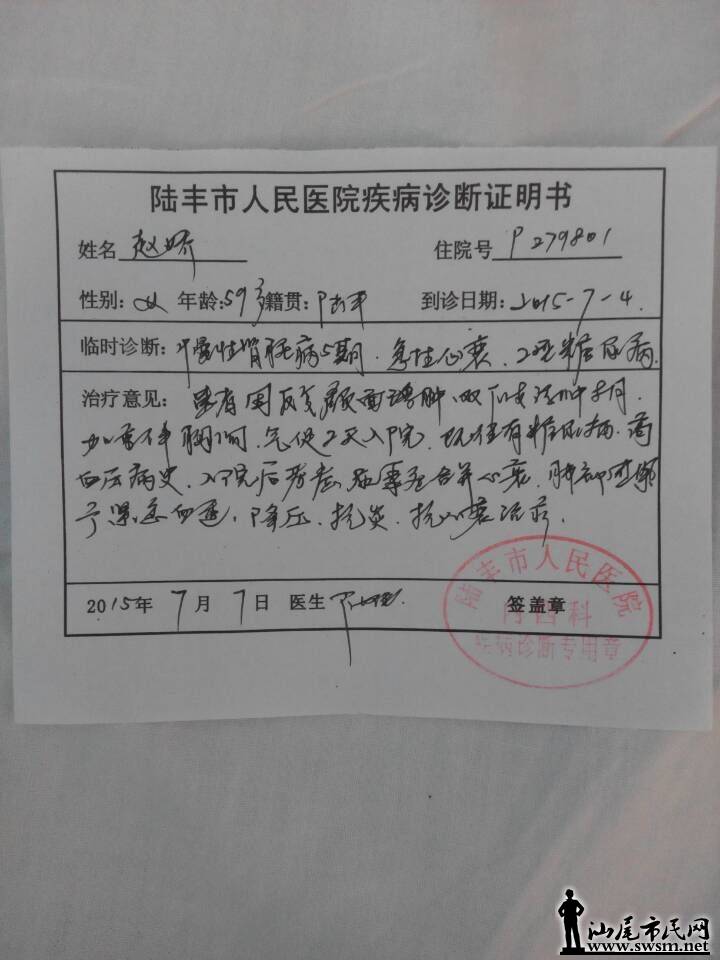 陆丰市人民医院疾病诊断证明书
姓名 赵娇 住院号 P279801
性别: 女 年龄: 59岁 籍贯: 陆丰 到诊日期: 2015-7-4.
临时诊断: 慢性肾脏病5期. 急性心衰. 2型糖尿病.
治疗意见: 患者因反复颜面浮肿、双下肢
胸闷、气促2天入院. 既往有糖尿病、高
血压病史. 入院后 合并心衰. 肺部感染
予 紧急血透、降压、抗炎、抗心衰治疗.
2015年 7月 7日 医生 签盖章
陆丰市人民医院
内四科
疾病诊断专用章
汕尾市民网
www.swsm.net